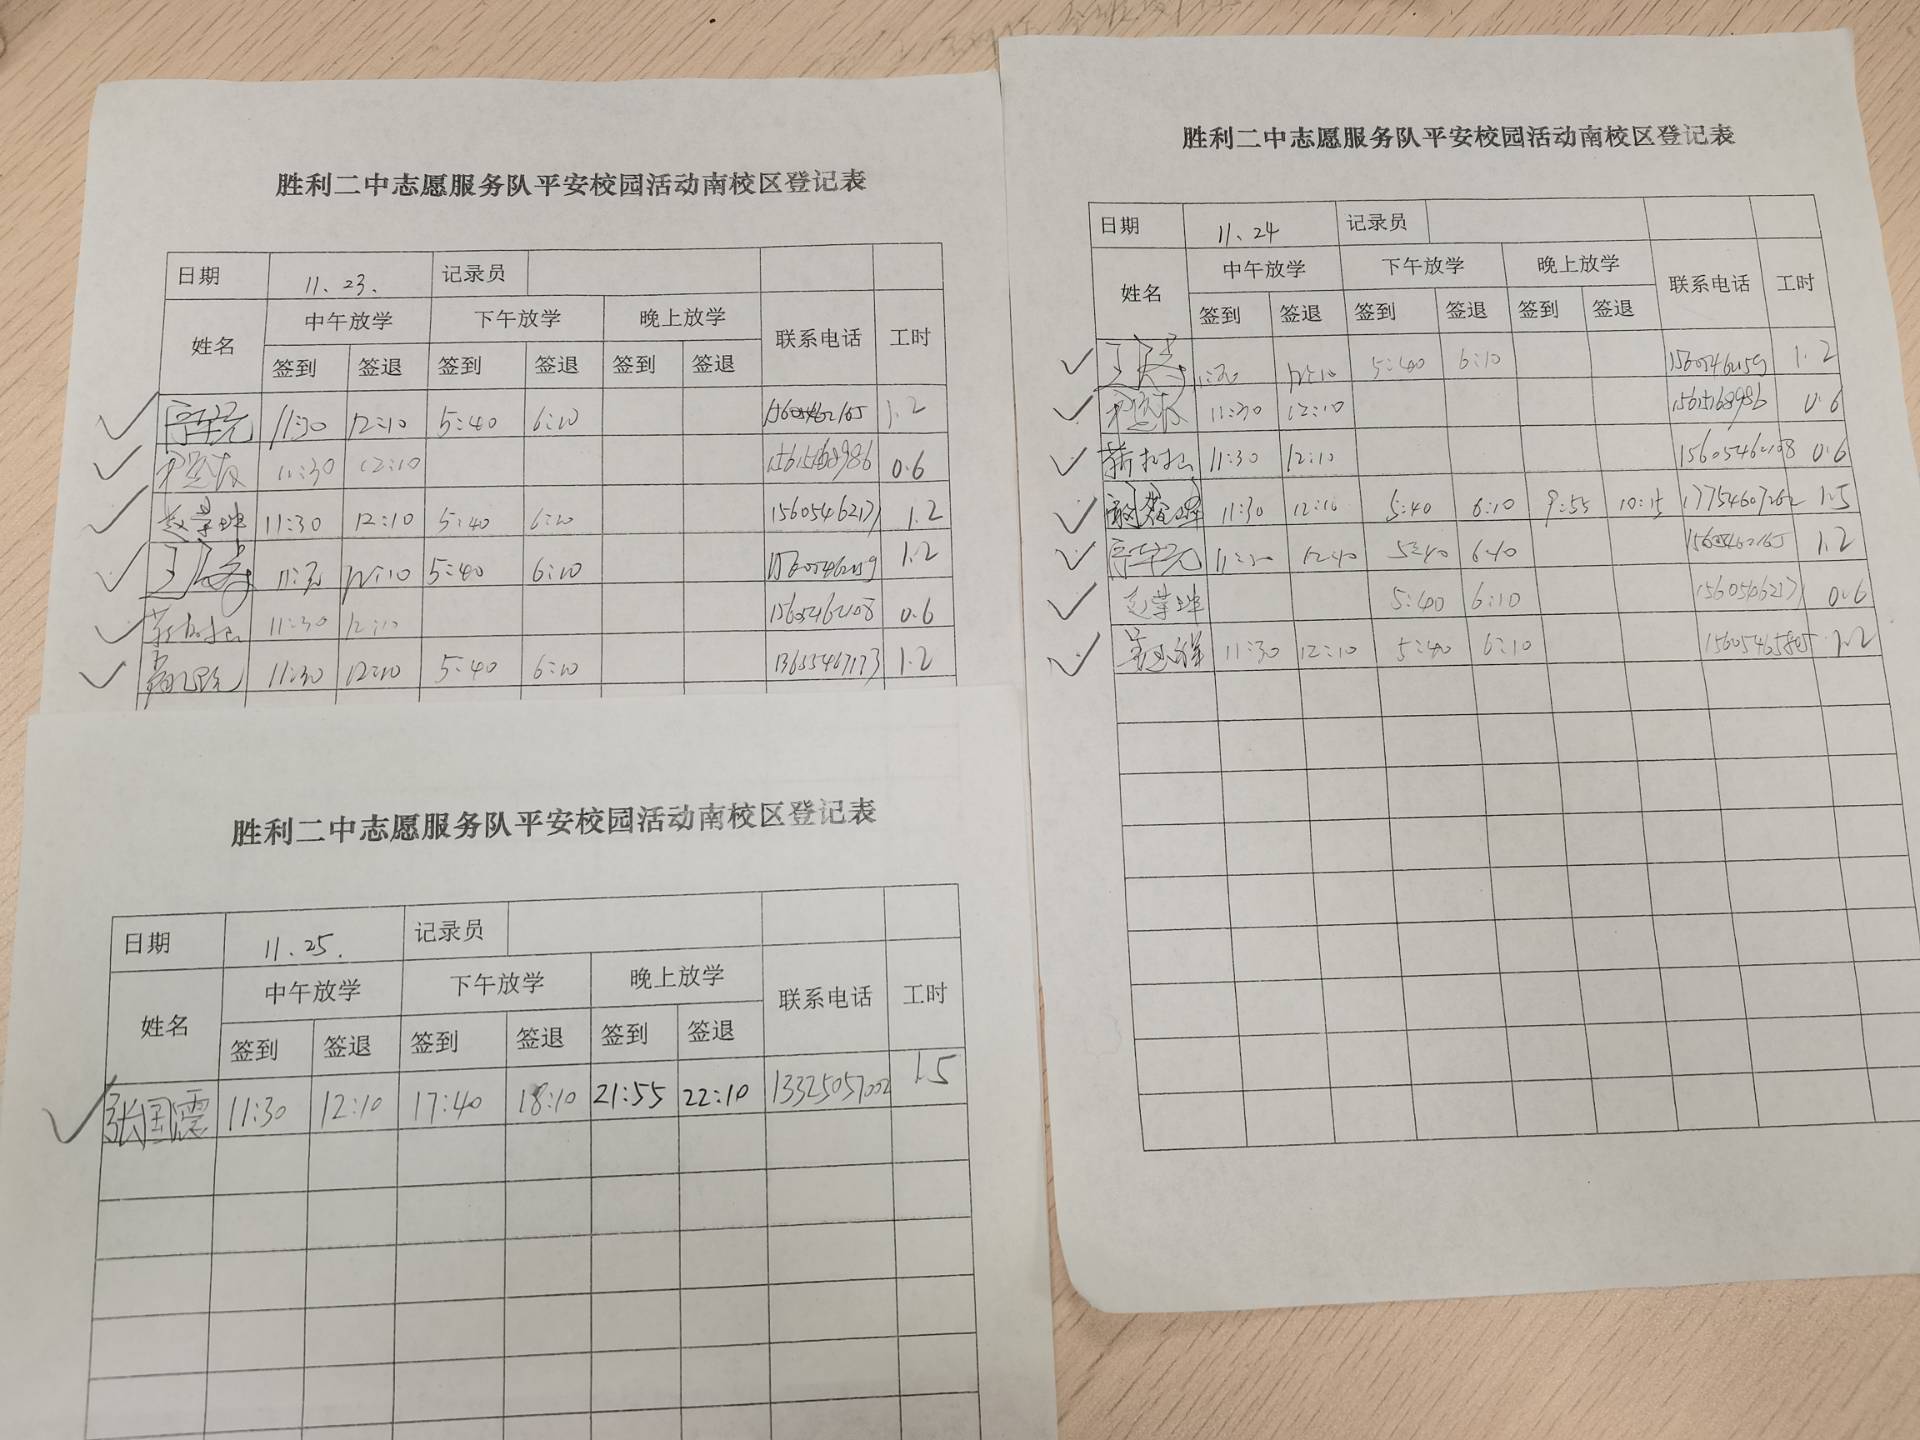 胜利二中志愿服务队平安校园活动南校区登记表
日期 11.23. 记录员
姓名 中午放学 下午放学 晚上放学 联系电话 工时
签到 签退 签到 签退 签到 签退
11:30 12:10 5:40 6:10 15605462165 1.2
11:30 12:10 15615168986 0.6
赵荣坤 11:30 12:10 5:40 6:10 15605462171 1.2
王 11:30 12:10 5:40 6:10 15605462159 1.2
11:30 12:10 15605462108 0.6
11:30 12:10 5:40 6:10 13655467173 1.2
胜利二中志愿服务队平安校园活动南校区登记表
日期 11、24 记录员
姓名 中午放学 下午放学 晚上放学 联系电话 工时
签到 签退 签到 签退 签到 签退
王 11:30 12:10 5:40 6:10 15605462159 1.2
11:30 12:10 15615168986 0.6
11:30 12:10 15605462108 0.6
11:30 12:10 5:40 6:10 9:55 10:15 17754607262 1.5
11:30 12:10 5:40 6:10 15605462165 1.2
赵荣坤 5:40 6:10 15605462171 0.6
11:30 12:10 5:40 6:10 15605465805 1.2
胜利二中志愿服务队平安校园活动南校区登记表
日期 11.25. 记录员
姓名 中午放学 下午放学 晚上放学 联系电话 工时
签到 签退 签到 签退 签到 签退
张国震 11:30 12:10 17:40 18:10 21:55 22:10 13325057002 1.5